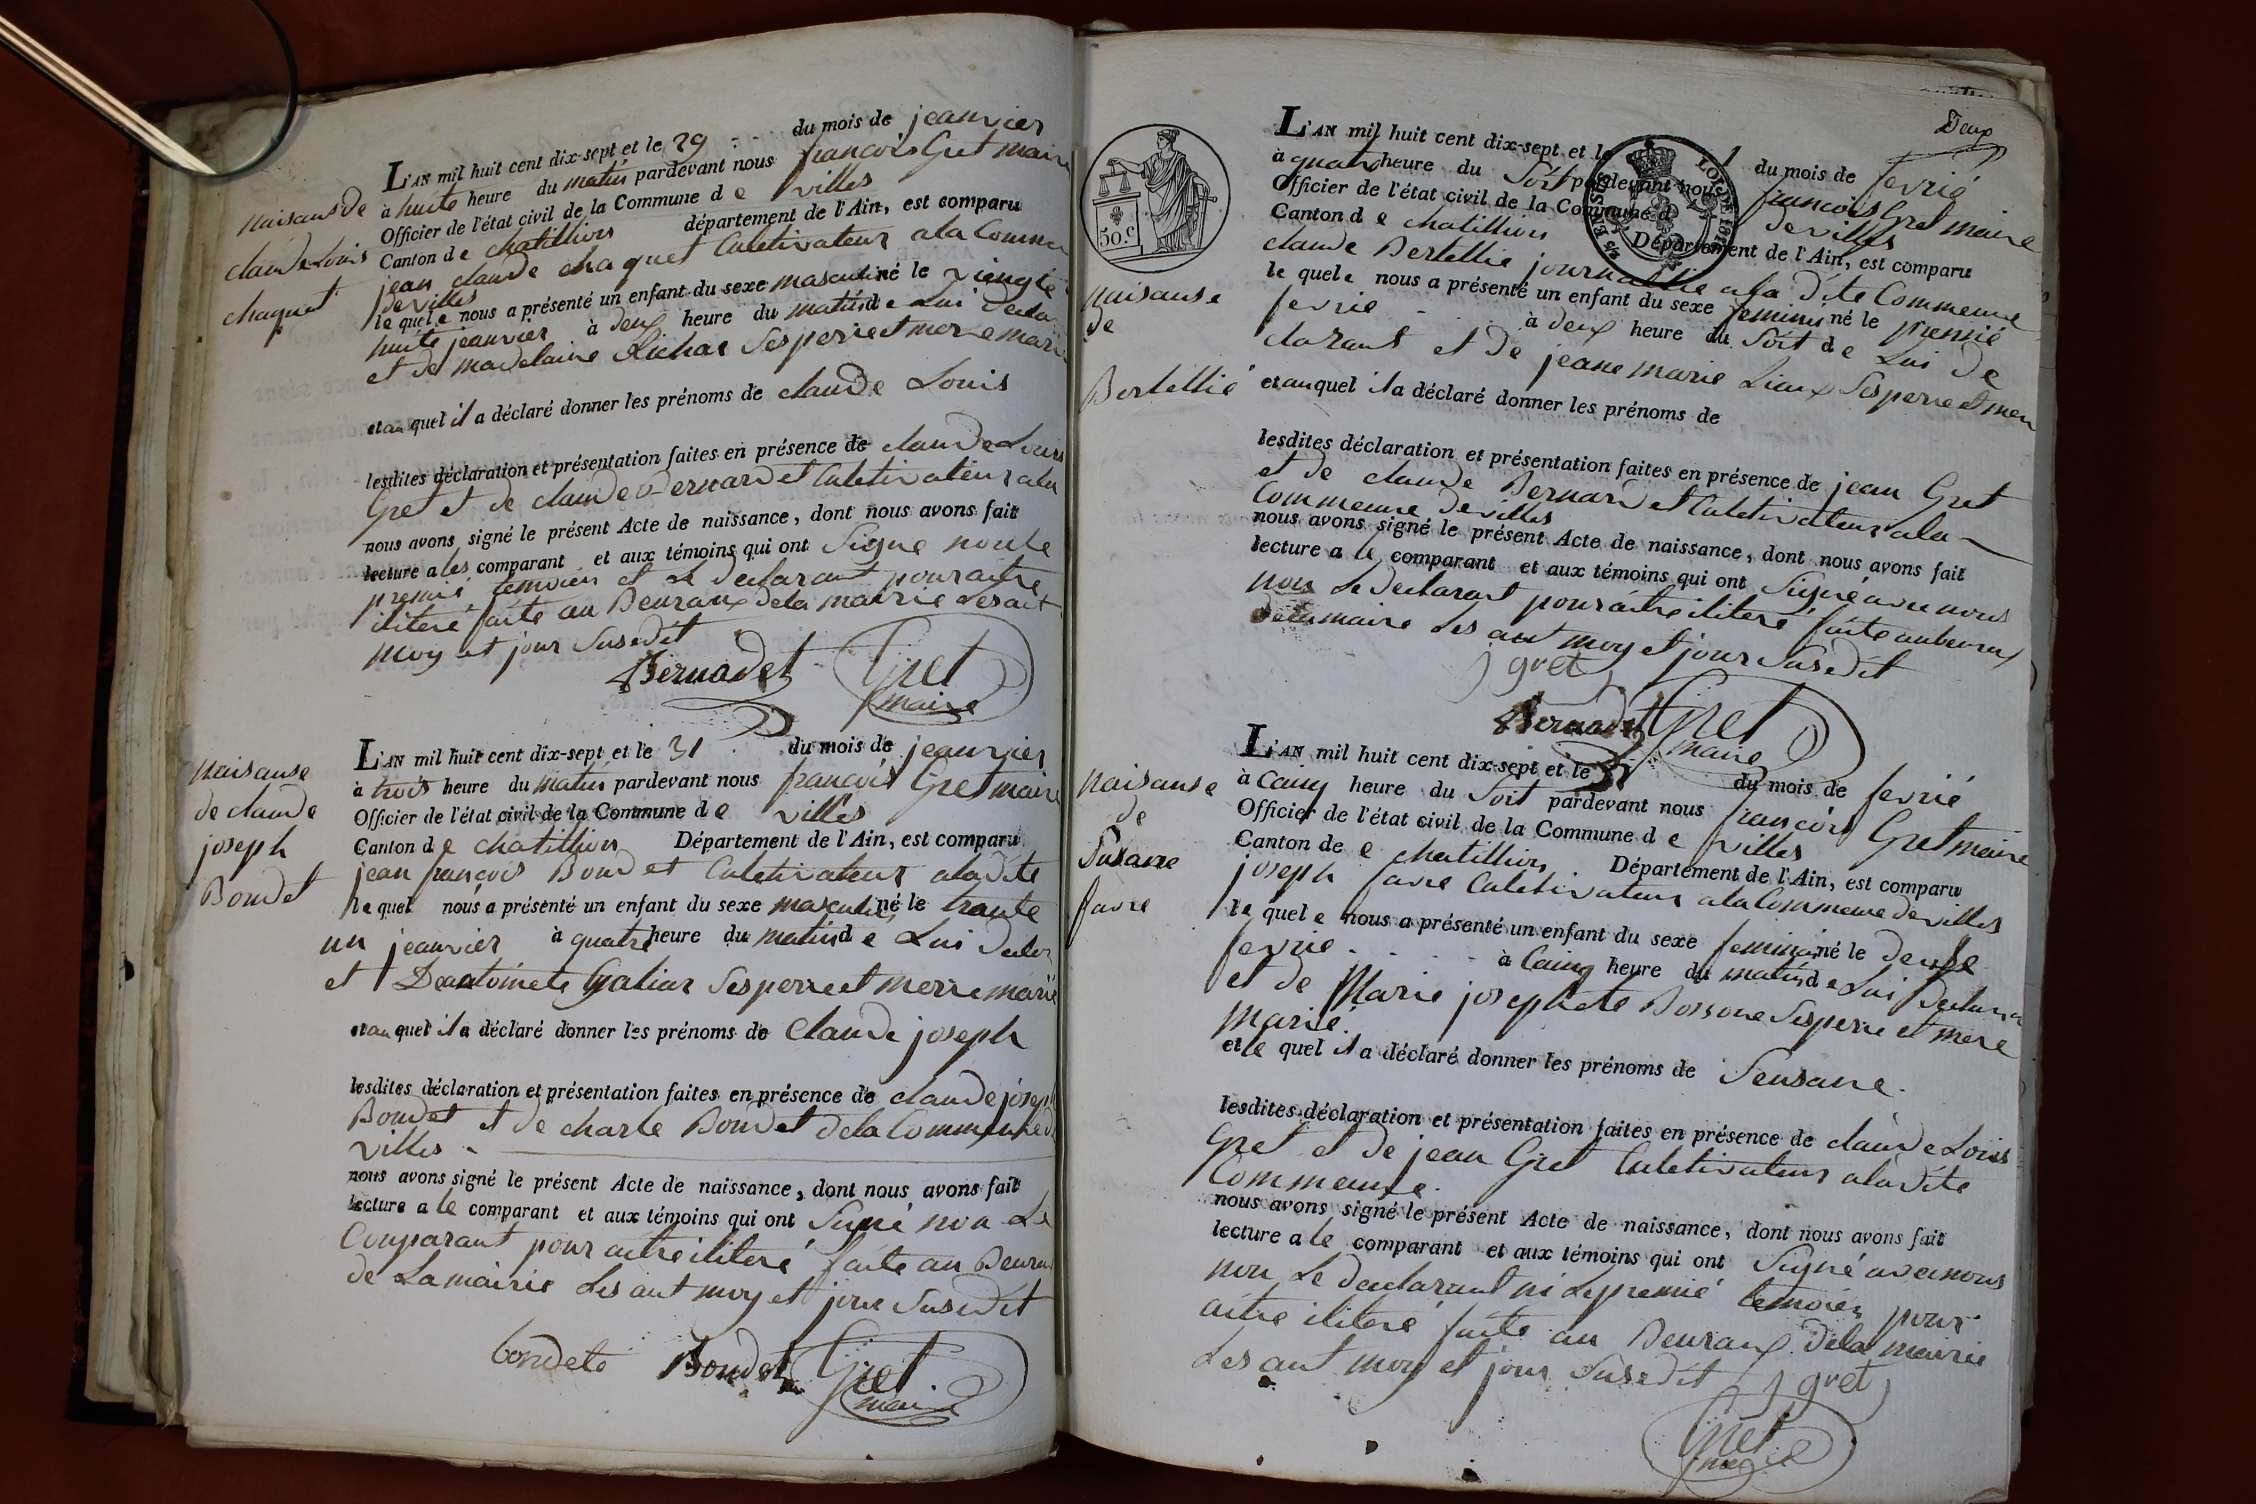 naisans de
claude Louis
chaquet
L'AN mil huit cent dix-sept et le 29 du mois de jeanvier
à huite heure du matin pardevant nous francois Gret maire
Officier de l'état civil de la Commune de villes
Canton de chatillion département de l'Ain, est comparu
jean claude chaquet Culetivateur ala Commu
de villes
le quele nous a présenté un enfant du sexe masculin né le viengte
huite jeanvier à deux heure du matin de Lui decla
et de madelaine Richar Ses perre et merre mari
et au quel il a déclaré donner les prénoms de claude Louis
lesdites déclaration et présentation faites en présence de claude Louis
Gret et de claude Bernardet Culetivateur ala
nous avons signé le présent Acte de naissance, dont nous avons fait
lecture a les comparant et aux témoins qui ont Signe nonle
premié temoien et Le declarant pour aitre
iliteré faite au Beuraux dela mairie Les ait
moy et jour Susedit
Bernadet Gret
maire
naisanse
de claude
joseph
Boudet
L'AN mil huit cent dix-sept et le 31 du mois de jeanvier
à trois heure du matin pardevant nous francois Gret maire
Officier de l'état civil de la Commune de villes
Canton de chatillion Département de l'Ain, est comparu
jean francois Boudet Culetivateur aladite
le quel nous a présenté un enfant du sexe masculin né le trante
un jeanvier à quatre heure du matin de Lui declar
et De antoinete Galiar Ses perre et merre marié
et au quel il a déclaré donner les prénoms de Claude joseph
lesdites déclaration et présentation faites en présence de claude joseph
Boudet et de charle Boudet dela Commeune de
villes
nous avons signé le présent Acte de naissance, dont nous avons fait
lecture a le comparant et aux témoins qui ont Signé non Le
Comparant pour aitre iliteré faite au Beurau
de La mairie Les ant moy et jour Susedit
boudete Boudet Gret
maire
Deux
50.c
LOI DE 1816
naisanse
de
Bertellié
L'AN mil huit cent dix-sept et le 1 du mois de fevrié
à quatre heure du Soit pardevant nous francois Gret maire
Officier de l'état civil de la Commune de villes
Canton de chatillion Département de l'Ain, est comparu
claude Bertellie journallie ala dite Commeune
le quele nous a présenté un enfant du sexe feminin né le premié
fevrie à deux heure du Soit de Lui de
clarant et de jeane marie Liaux Ses perre et merr
et au quel il a déclaré donner les prénoms de
lesdites déclaration et présentation faites en présence de jean Gret
et de claude Bernardet Culetivateur ala
Commeune de villes
nous avons signé le présent Acte de naissance, dont nous avons fait
lecture a le comparant et aux témoins qui ont Signé avec nous
non Le declarant pour aitre iliteré faite au beuraux
dela maire Les ant moy et jour Susedit
j gret
Bernadet Gret
maire
naisanse
de
Susane
favre
L'AN mil huit cent dix-sept et le du mois de fevrié
à Cainq heure du Soit pardevant nous francois Gret maire
Officier de l'état civil de la Commune de villes
Canton de e chatillion Département de l'Ain, est comparu
joseph favre Culetivateur ala Commeune de villes
le quel e nous a présenté un enfant du sexe feminin né le deuse
fevrie à Cainq heure du matin de Lui declara
et de Marie josephete Bossone Ses perre et mere
marié.
et le quel il a déclaré donner les prénoms de Sensane.
lesdites déclaration et présentation faites en présence de claude Louis
Gret et de jean Gret Culetivateur aladite
Commeune.
nous avons signé le présent Acte de naissance, dont nous avons fait
lecture a le comparant et aux témoins qui ont Signé avec nous
non Le declarant ni Le premié temoien pour
aitre iliteré faite au Beuraux dela mairie
Les ant moy et jour Susedit j gret
Gret